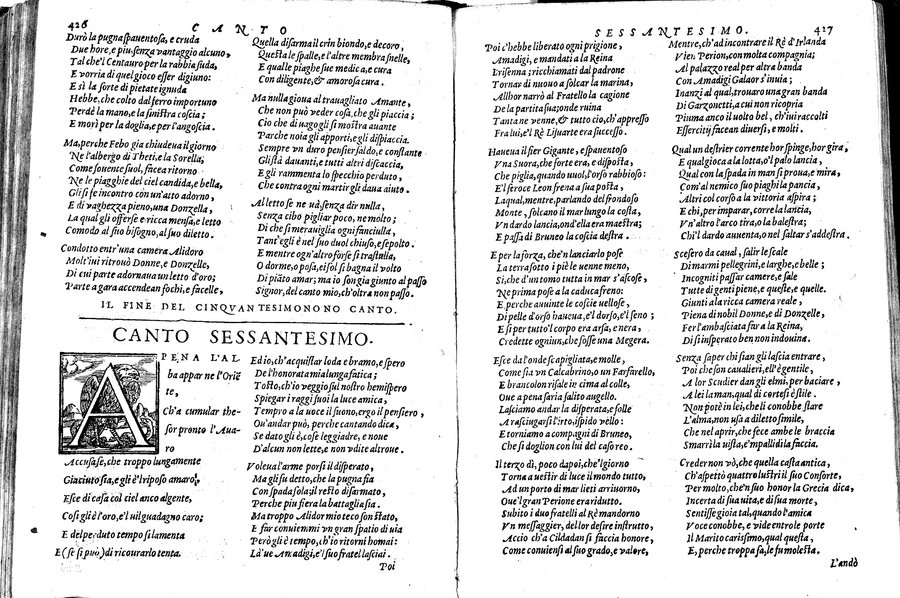 426
CANTO
Durò la pugna spauentosa, e cruda
Due hore, e piu, senza vantaggio alcuno,
Tal che'l Centauro per la rabbia suda,
E vorria di quel gioco esser digiuno:
E sì la forte di pietate ignuda
Hebbe, che colto dal ferro importuno
Perdè la mano, e la sinistra coscia;
E morì per la doglia, e per l'angoscia.
Ma, perche Febo gia chiudeua il giorno
Ne l'albergo di Theti, e la Sorella;
Come souente suol, facea ritorno
Ne le piagghie del ciel candida, e bella,
Gli si fe incontro con un'atto adorno,
E di vaghezza pieno, una Donzella,
La qual gli offerse e ricca mensa, e letto
Comodo al suo bisogno, al suo diletto.
Condotto entr'una camera Alidoro
Molt'iui ritrouò Donne, e Donzelle,
Di cui parte adornaua un letto d'oro;
Parte a gara accendean fochi, e facelle,
Quella disarma il crin biondo, e decoro,
Questa le spalle, e l'altre membra snelle,
E qual le piaghe sue medica, e cura
Con diligente, & amorosa cura.
Ma nulla gioua al trauagliato Amante,
Che non può veder cosa, che gli piaccia;
Cio che di uago gli si mostra auante
Par che noia gli apporti, e gli dispiaccia.
Sempre vn duro pensier saldo, e constante
Gli stà dauanti, e tutti altri discaccia,
E gli rammenta lo specchio perduto,
Che contra ogni martir gli daua aiuto.
Al letto se ne uà, senza dir nulla,
Senza cibo pigliar poco, ne molto;
Di che si merauiglia ogni fanciulla,
Tant'egli è nel suo duol chiuso, e sepolto.
E mentre ogn'altro forse si trastulla,
O dorme, o posa, ei sol si bagna il volto
Di piāto amar; ma io son gia giunto al passo
Signor, del canto mio, ch'oltra non passo.
IL FINE DEL CINQVANTESIMONONO CANTO.
CANTO SESSANTESIMO.
APENA L'AL
ba appar ne l'Oriē
te,
Ch'a cumular the-
sor pronto l'Aua-
ro
Accusase, che troppo lungamente
Giaciuto sia, e gli è'l riposo amaro,
Esce di casa col ciel anco algente,
Cosi gli è l'oro, e'l uil guadagno caro;
E del perduto tempo si lamenta
E (se si può) di ricourarlo tenta.
Ed io, ch'acquistar loda e bramo, e spero
De l'honorata mia lunga fatica;
Tosto, ch'io veggio sul nostro hemispero
Spiegar i raggi suoi la luce amica,
Tempro a la uoce il suono, ergo il pensiero,
Ou'andar può, perche cantando dica,
Se dato gli è, cose leggiadre, e noue
D'alcun non lette, e non vdite altroue.
Volea l'arme porsi il disperato,
Ma gli fu detto, che la pugna sia
Con spada sola; il resto disarmato,
Perche piu fiera la battaglia sia.
Ma troppo Alidor mio teco son stato,
E far conuiemmi vn gran spatio di uia
Però gli è tempo, ch'io ritorni homai:
Là've Amadigi, e'l suo fratel lasciai.
Poi
SESSANTESIMO.
427
Poi c'hebbe liberato ogni prigione,
Amadigi, e mandati a la Reina
Erisenna; ricchiamati dal padrone
Tornar di nuouo a solcar la marina,
Allhor narrò al Fratello la cagione
De la partita sua; onde ruina
Tanta ne venne, & tutto cio, ch'appresso
Fra lui, e'l Rè Lisuarte era successo.
Haueua il fier Gigante, e spauentoso
Vna Suora, che forte era, e disposta,
Che piglia, quando uuol, l'orso rabbioso:
E'l feroce Leon fren a a sua posta,
Laqual, mentre, parlando del frondoso
Monte, solcano il mar lungo la costa,
Vn dardo lancia, ond'ella era maestra;
E passa di Bruneo la coscia destra.
E per la forza, che'n lanciarlo pose
La terra sotto i piè le uenne meno,
Si, che d'un como tutta in mar s'ascose,
Ne prima pose a la caduca freno:
E perche auuinte le coscie uellose,
Di pelle d'orso haueua, e'l dorso, e'l seno;
E si per tutto'l corpo era arsa, e nera,
Credette ogniun, che fosse una Megera.
Esce da l'onde scapigliata, e molle,
Come sia vn Calcabrino, o un Farfarello,
E brancolon risale in cima al colle,
Oue a pena saria salito augello.
Lasciamo andar la disperata, e folle
A rasciugarsi l'irto, ispido vello:
E torniamo a compagni di Bruneo,
Che si doglion con lui del caso reo.
Il terzo dì, poco dapoi, che'l giorno
Torna a uestir di luce il mondo tutto,
Ad un porto di mar lieti arriuorno,
Que'l gran Perione era ridutto,
Subito i duo fratelli al Rè mandorno
Vn messaggier, del lor desire instrutto,
Accio ch'a Cildadan si faccia honore,
Come conuiensi al suo grado, e valore,
Mentre, ch'ad incontrare il Rè d'Irlanda
Vien Perion, con molta compagnia;
Al palazzo real per altra banda
Con Amadigi Galaor s'inuia;
Inanzi al qual, trouaro una gran banda
Di Garzonetti, a cui non ricopria
Piuma anco il uolto bel, ch'iui raccolti
Essercitij facean diuersi, e molti.
Qual un destrier corrente hor spinge, hor gira,
E qual gioca a la lotta, o'l palo lancia,
Qual con la spada in man si proua, e mira,
Com'al nemico suo piaghi la pancia,
Altri col corso a la vittoria aspira;
E chi, per imparar, corre la lancia,
Vn'altro l'arco tira, o la balestra;
Chi'l dardo auuenta, o nel saltar s'addestra.
Scesero da caual, salir le scale
Di marmi pellegrini, e larghe, e belle;
Incominciar passar camere, e sale
Tutte di genti piene, e queste, e quelle.
Giunti a la ricca camera reale,
Piena di nobil Donne, e di Donzelle,
Fer l'ambasciata far a la Reina,
Di sì insperato ben non indouina.
Senza saper chi sian gli lascia entrare,
Poi che son caualieri, e'l è gentile,
A lor Scudier dan gli elmi, per baciare,
A lei la man, qual di cortesi è stile.
Non potè in lei, che li conobbe stare
L'alma, non usa a diletto simile,
Che nel aprir, che fece ambe le braccia
Smarrì la uista, e'mpallidì la faccia.
Creder non vò, che quella casta antica,
Ch'aspettò quattro lustri il suo Consorte,
Per molto, che'n suo honor la Grecia dica,
Incerta di sua uita, e di sua morte,
Sentisse gioia tal, quando l'amica
Voce conobbe, e vide entro le porte
Il Marito carissimo, qual questa,
E, perche troppa fa, le fu molesta.
L'andò